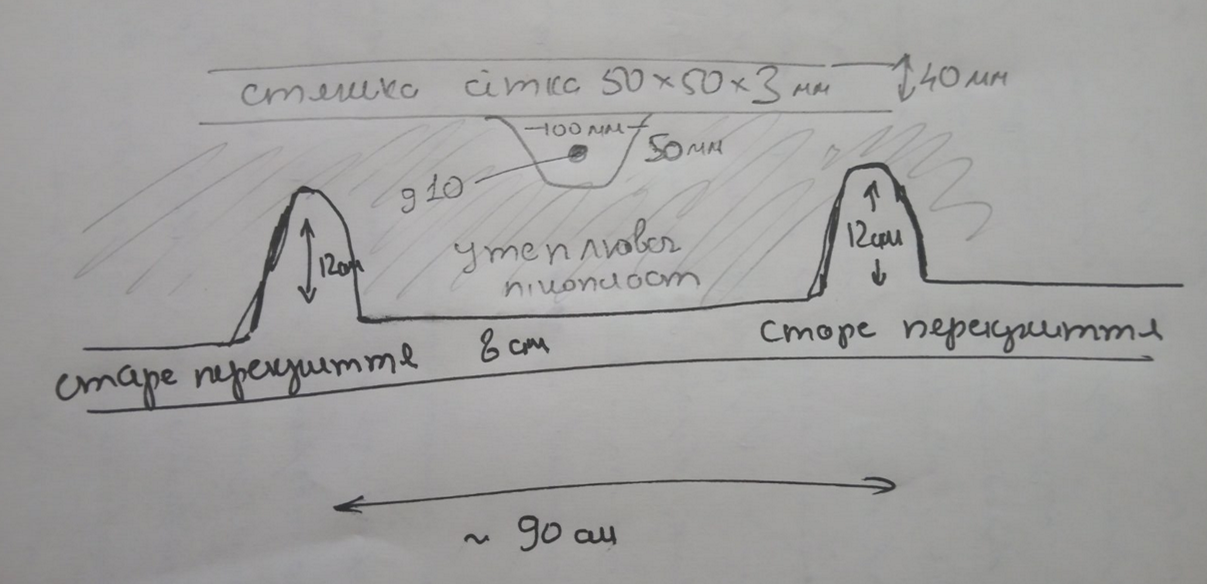 стяжка сітка 50×50×3 мм 40мм
100мм
50мм
ø10
утеплювач
пінопласт
12см
12см
старе перекриття 8 см
старе перекриття
~ 90 см